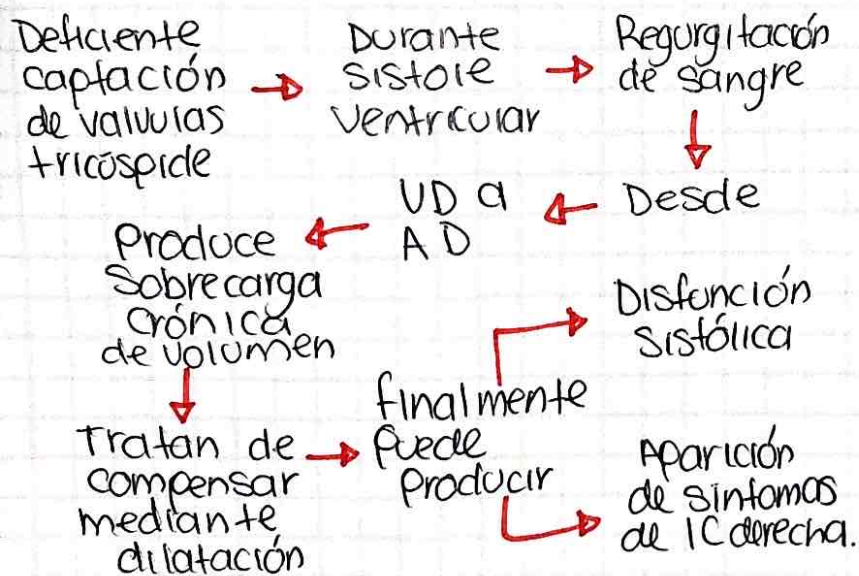 Deficiente
captación
de valvulas
tricúspide
Durante
sistole
ventricular
Regurgitación
de sangre
Desde
VD a
AD
Produce
sobrecarga
crónica
de volumen
Tratan de
compensar
mediante
dilatación
finalmente
puede
producir
Disfunción
sistólica
Aparición
de síntomas
de IC derecha.